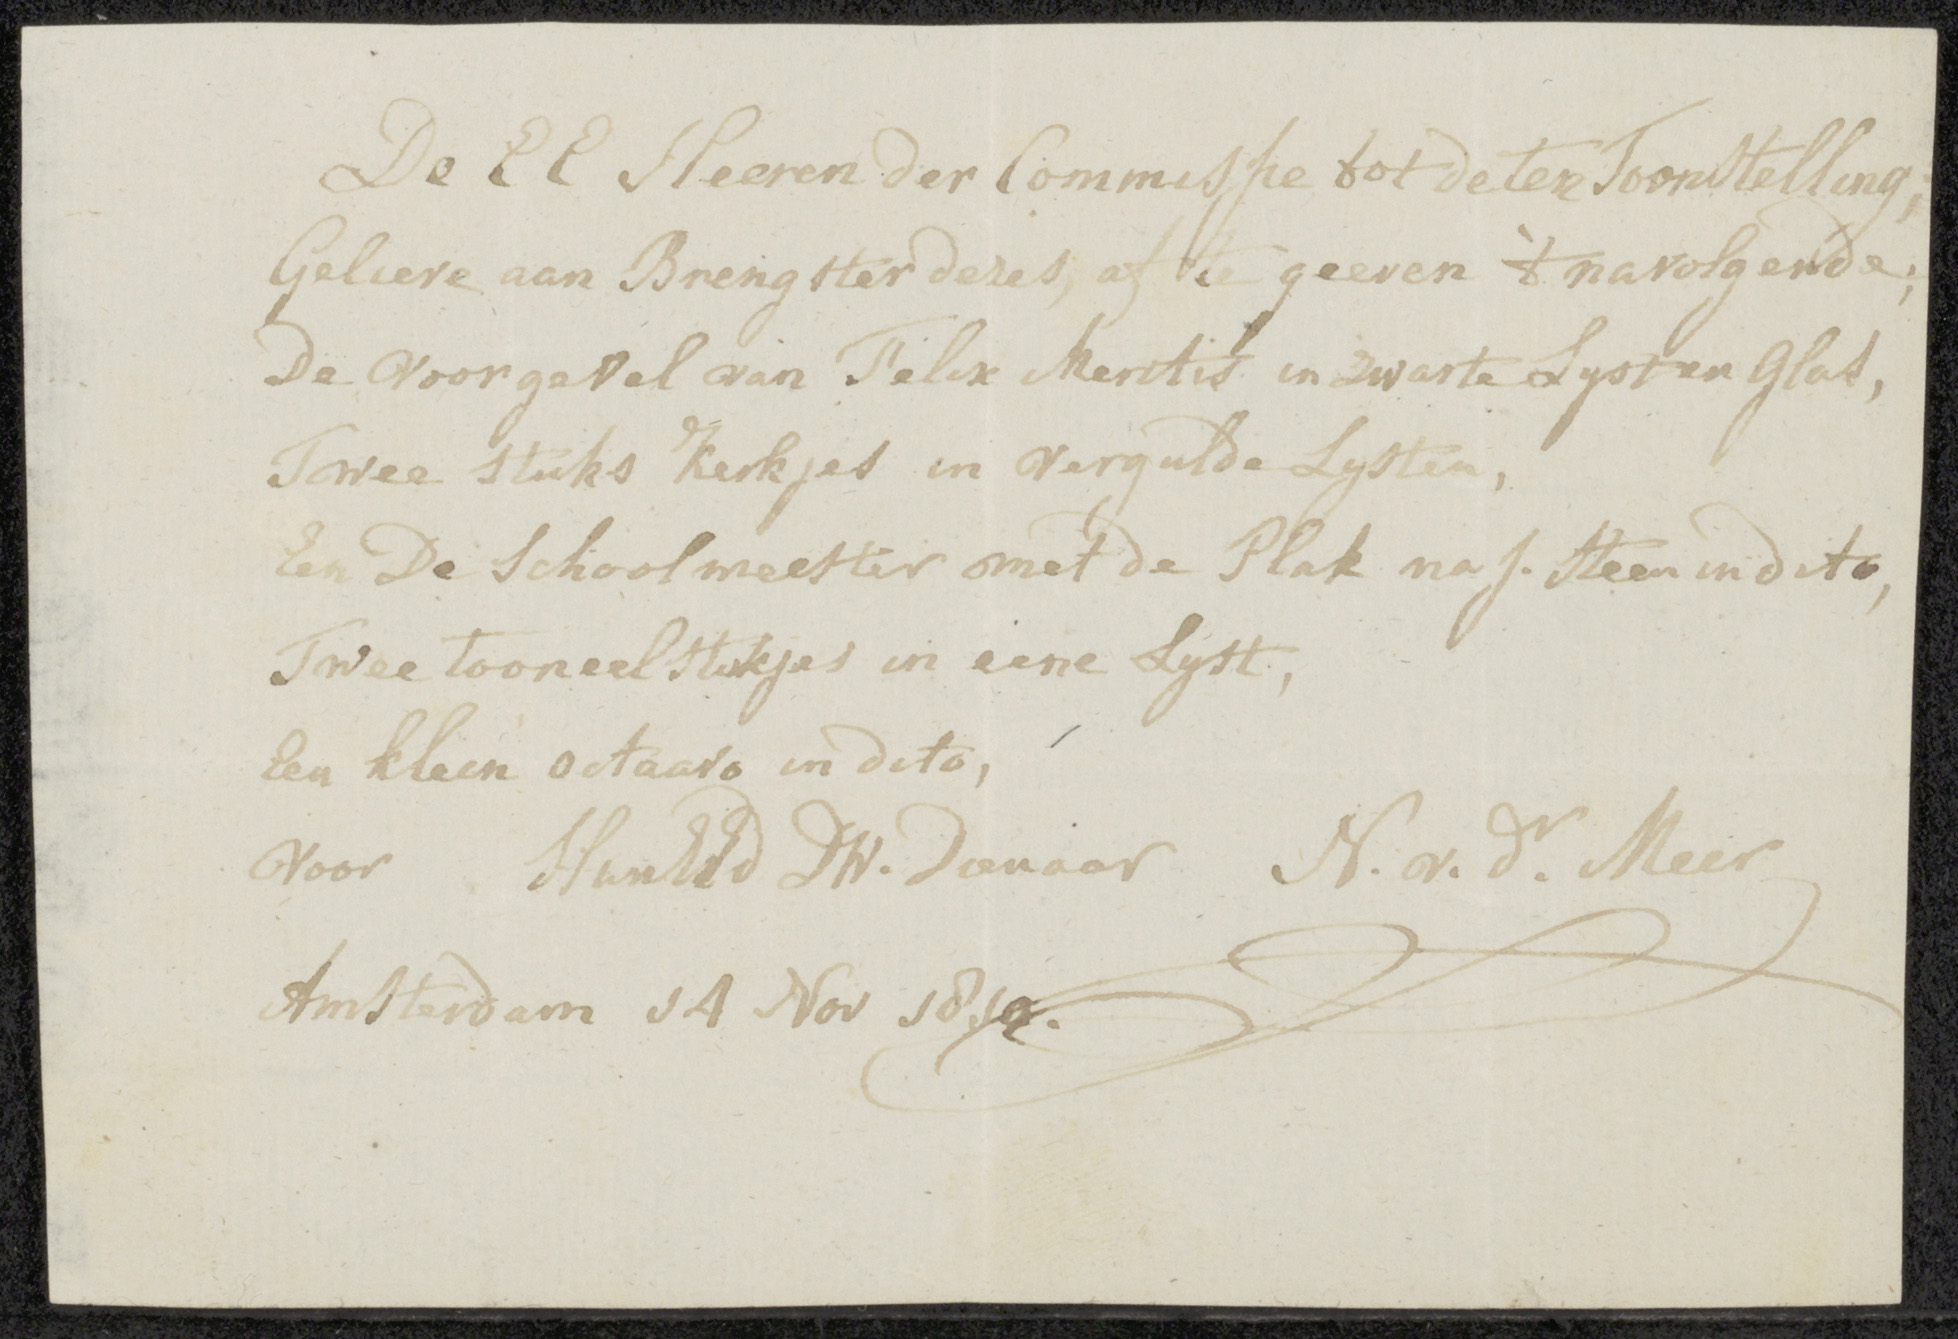 De EE Heeren der Commissie tot de ten Toonstelling,
Gelieve aan Brengster dezes, af te geeven 't navolgende;
De voorgevel van Felix Meritis in zwarte Lyst en Glas,
Twee stuks Kerkjes in vergulde Lysten,
Een De Schoolmeester met de Plak na J. Steen in dito,
Twee tooneelstukjes in eene Lyst,
Een klein octaavo in dito,
voor HunEEd DW. Dienaar N. v. dr. Meer
Amsterdam 14 Nov